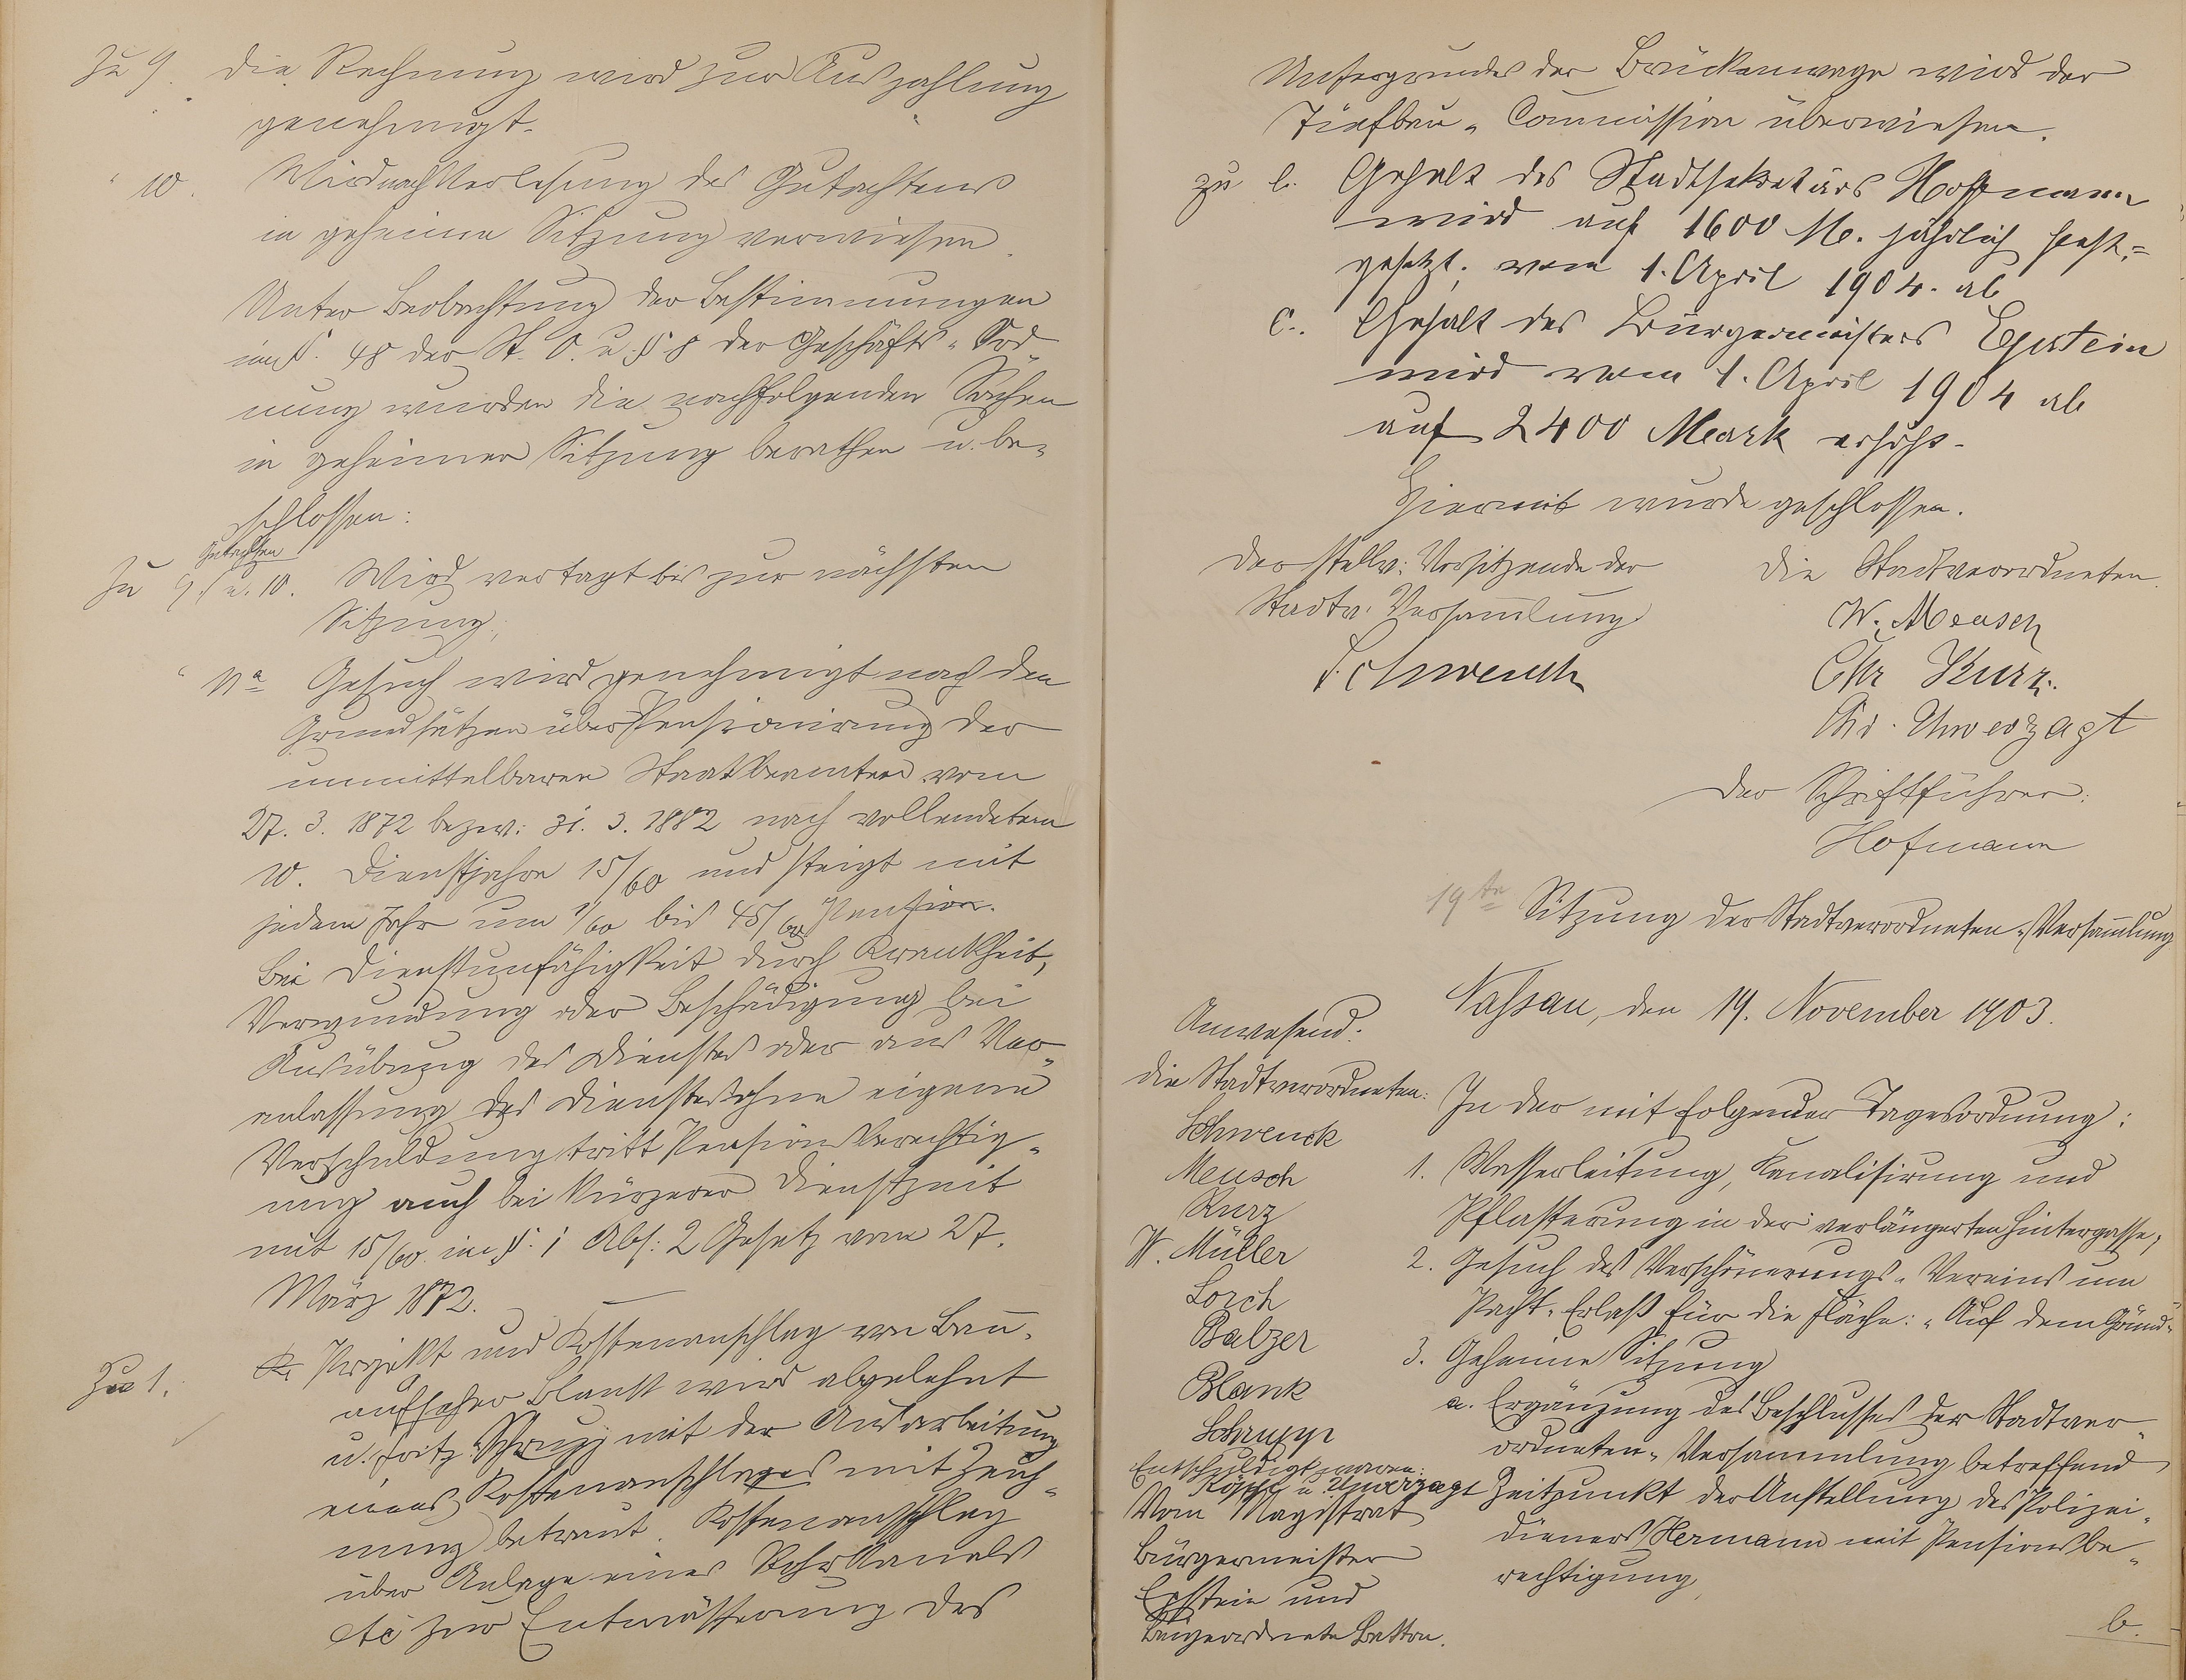 Zu 9. Die Rechnung wird zur Auszahlung
genehmigt.
" 10. Wird nach Verlesung des Gutachtens
in geheime Sitzung verwiesen.
Unter Beobachtung der Bestimmungen
im §. 48 der St. O. u. § 8 der Geschäfts-Ord-
nung wurden die nachfolgenden Sachen
in geheimer Sitzung berathen u. be-
schlossen:
Gutachten
Zu 9 u. 10. Wird vertagt bis zur nächsten
Sitzung.
" 11a Gesuch wird genehmigt nach den
Grundsätzen über Pensionirung der
unmittelbaren Staatsbeamten vom
27. 3. 1872 bezw: 31. 3. 1882 nach vollendetem
10. Dienstjahre 15/60 und steigt mit
jedem Jahr um 1/60 bis 45/60 Pension.
Bei Dienstunfähigkeit durch Krankheit,
Verwundung oder Beschädigung bei
Ausübung des Dienstes oder aus Ver-
anlassung des Dienstes ohne eigene
Verschuldung tritt Pensionsberechtig-
ung auch bei kürzerer Dienstzeit
mit 15/60 im §. 1 Abs: 2 Gesetz vom 27.
März 1872.
Zu 1. Projekt und Kostenanschlag von Bau-
aufseher Blank wird abgelehnt
u. Fritz Schrupp mit der Ausarbeitung
eines Kostenanschlages mit Zeich-
nung betraut. Kostenanschlag
über Anlage eines Rohrkanals
etc zur Entwässerung des
Untergrundes der Brückenwage wird der
Tiefbau-Commission überwiesen.
zu b. Gehalt des Stadtsekretärs Hoffmann
wird auf 1600 M. jährlich fest-
gesetzt, vom 1. April 1904. ab
c. Gehalt des Bürgermeisters Epstein
wird vom 1. April 1904 ab
auf 2400 Mark erhöht.
Hiermit wurde geschlossen.
Der stellv: Vorsitzende der
Stadtv. Versammlung
Schwenck
Die Stadtverordneten.
W. Meusch
Chr Kurz.
Chr. Unverzagt
Der Schriftführer:
Hofmann
19te Sitzung der Stadtverordneten-Versammlung
Nassau, den 19. November 1903.
Anwesend:
die Stadtverordneten:
Schwenck
Meusch
Kurz
W. Müller
Lorch
Balzer
Blank
Schrupp
Entschuldigt waren:
u Unverzagt
Vom Magistrat
Bürgermeister
Epstein und
Beigeordnete
In der mit folgender Tagesordnung:
1. Wasserleitung, Kanalisirung und
Pflasterung in der verlängerten Hintergasse;
2. Gesuch des Verschönerungs-Vereins um
Pacht-Erlaß für die Fläche: "Auf dem Gründ"
3. Geheime Sitzung
a. Ergänzung des Beschlusses der Stadtver-
ordneten-Versammlung betreffend
Zeitpunkt der Anstellung des Polizei-
dieners Hermann mit Pensionsbe-
rechtigung,
b.